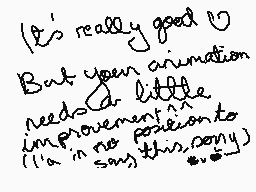 It's really good ♡
But your animation
needs a little
improvement ^^
(I'm in no position to
say this, sorry)